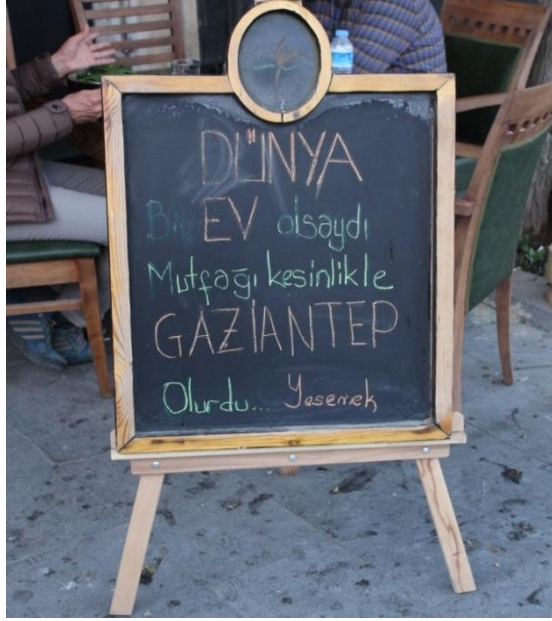 DÜNYA
Bir EV olsaydı
Mutfağı kesinlikle
GAZİANTEP
Olurdu... Yesemek